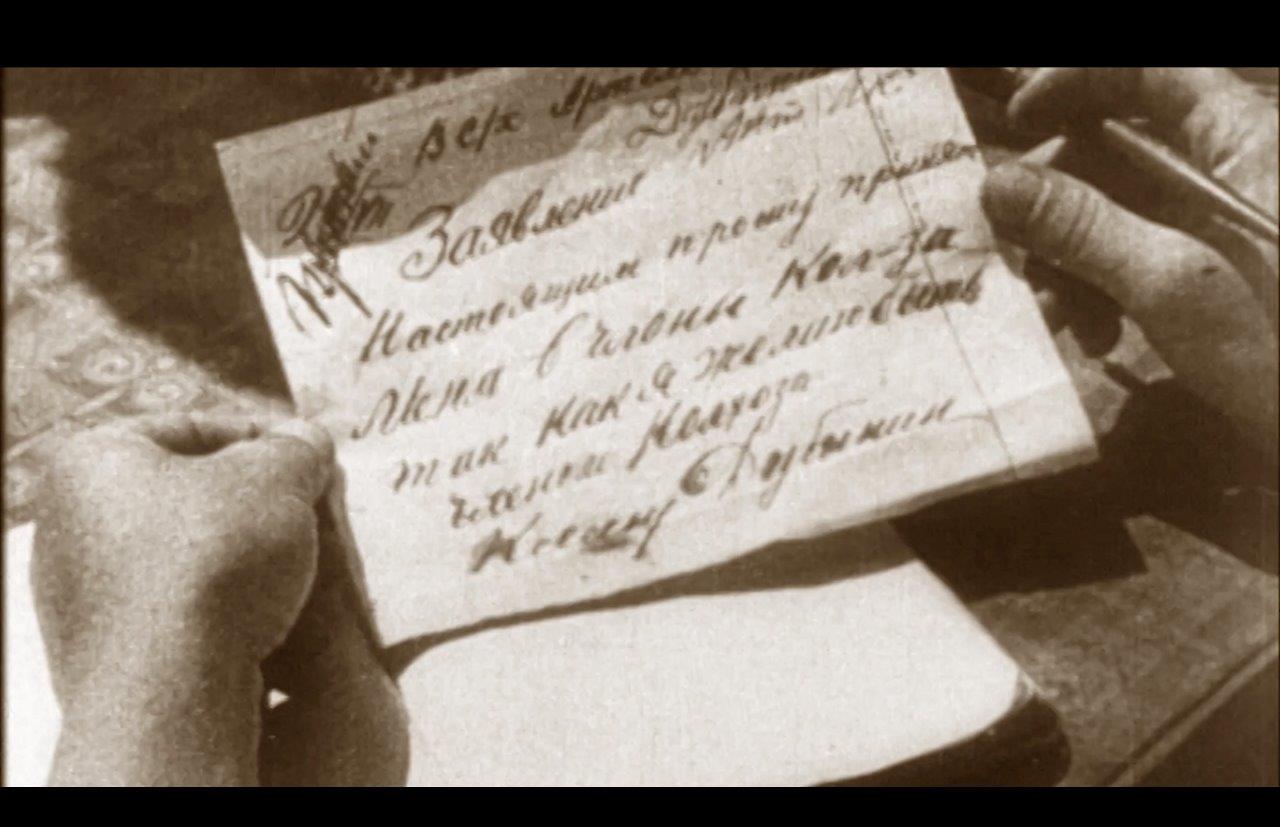 В с/х Артель
Заявление
Настоящим прошу принят
Меня в члены Кол-за
так как я желаю быть
членом Колхоза
К сему Дубынин